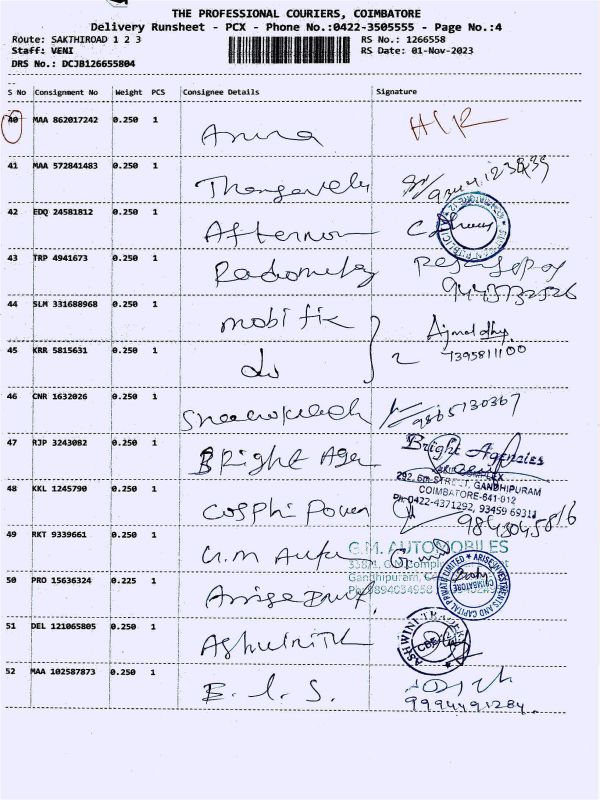 THE PROFESSIONAL COURIERS, COIMBATORE
Delivery Runsheet - PCX - Phone No.:0422-3505555 - Page No.:4
Route: SAKTHIROAD 1 2 3 RS No.: 1266558
Staff: VENI RS Date: 01-Nov-2023
DRS No.: DCJB126655804
S No Consignment No Weight PCS Consignee Details Signature
40 MAA 862017242 0.250 1
41 MAA 572841483 0.250 1 Thangavelu
42 EDQ 24581812 0.250 1 Afternoon
43 TRP 4941673 0.250 1 Radiometry
9443732526
44 SLM 331688968 0.250 1 mobi fix
7395811100
45 KRR 5815631 0.250 1 do 2
46 CNR 1632026 0.250 1 9865130367
47 RJP 3243082 0.250 1 Bright Agen Bright Agencies
292, 6th STREET, GANDHIPURAM
COIMBATORE-641 012
Ph:0422-4371292, 93459 69311
48 KKL 1245790 0.250 1 Cosphi Power 9843045816
49 RKT 9339661 0.250 1 G.M Auto G.M. AUTOMOBILES
Gandhipuram,
50 PRO 15636324 0.225 1 ARISE INVESTMENTS AND CAPITAL PRIVATE LIMITED
COIMBATORE
51 DEL 121065805 0.250 1 Ashwinith ASHWINI TRADERS
CBE
52 MAA 102587873 0.250 1 B. I. S.
9994491284